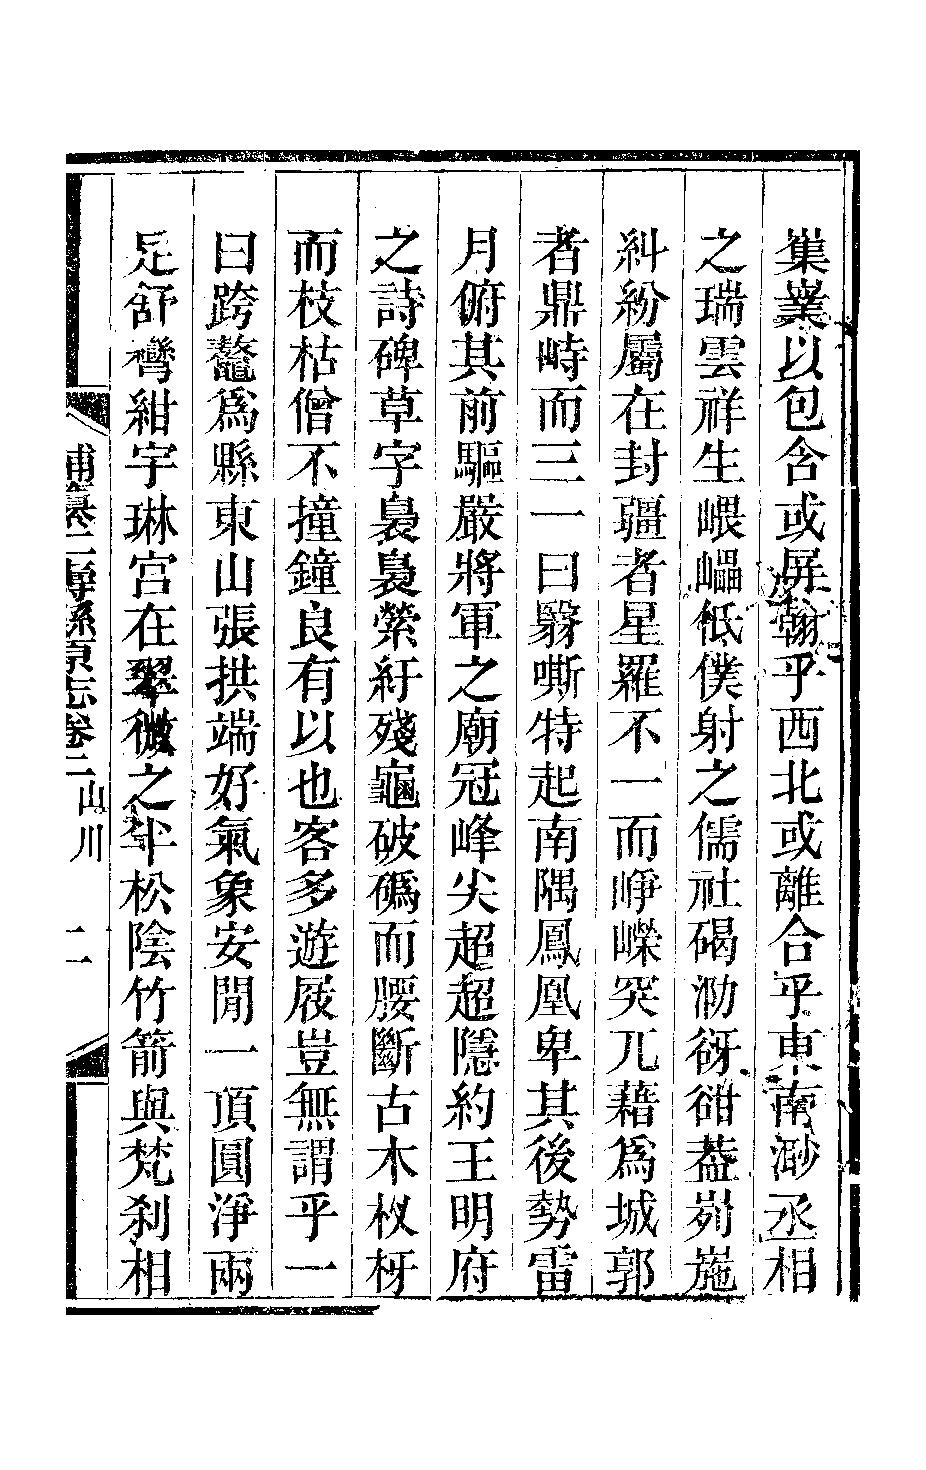 集業以包含或屏翰乎西北或離合乎東南渺丞相
之瑞雲祥生㟪嶇低僕射之儒社碣泐谺㟏葢峛崺
糾紛屬在封疆者星羅不一而崢嶸突兀藉爲城郭
者鼎峙而三一曰翳嘶特起南隅鳳凰卑其後勢雷
月俯其前驅嚴將軍之廟冠峰尖超超隱約王明府
之詩碑草字裊裊縈紆殘龜破碼而腰斷古木杈枒
而枝枯僧不撞鐘良有以也客多遊屐豈無謂乎一
曰跨鼇爲縣東山張拱端好氣象安閒一頂圓淨兩
足舒臠紺宇琳宮在翠微之半松陰竹箭與梵刹相
補纂仁壽縣原志卷二山川 二